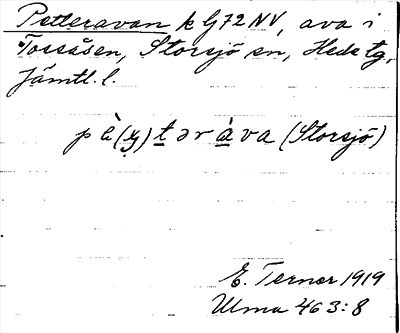 Petteravan k G72NV, ava i
Tossåsen, Storsjö sn, Hede tg,
Jämtl. l.
pè(y)təràva (Storsjö)
E. Terner 1919
Ulma 463:8